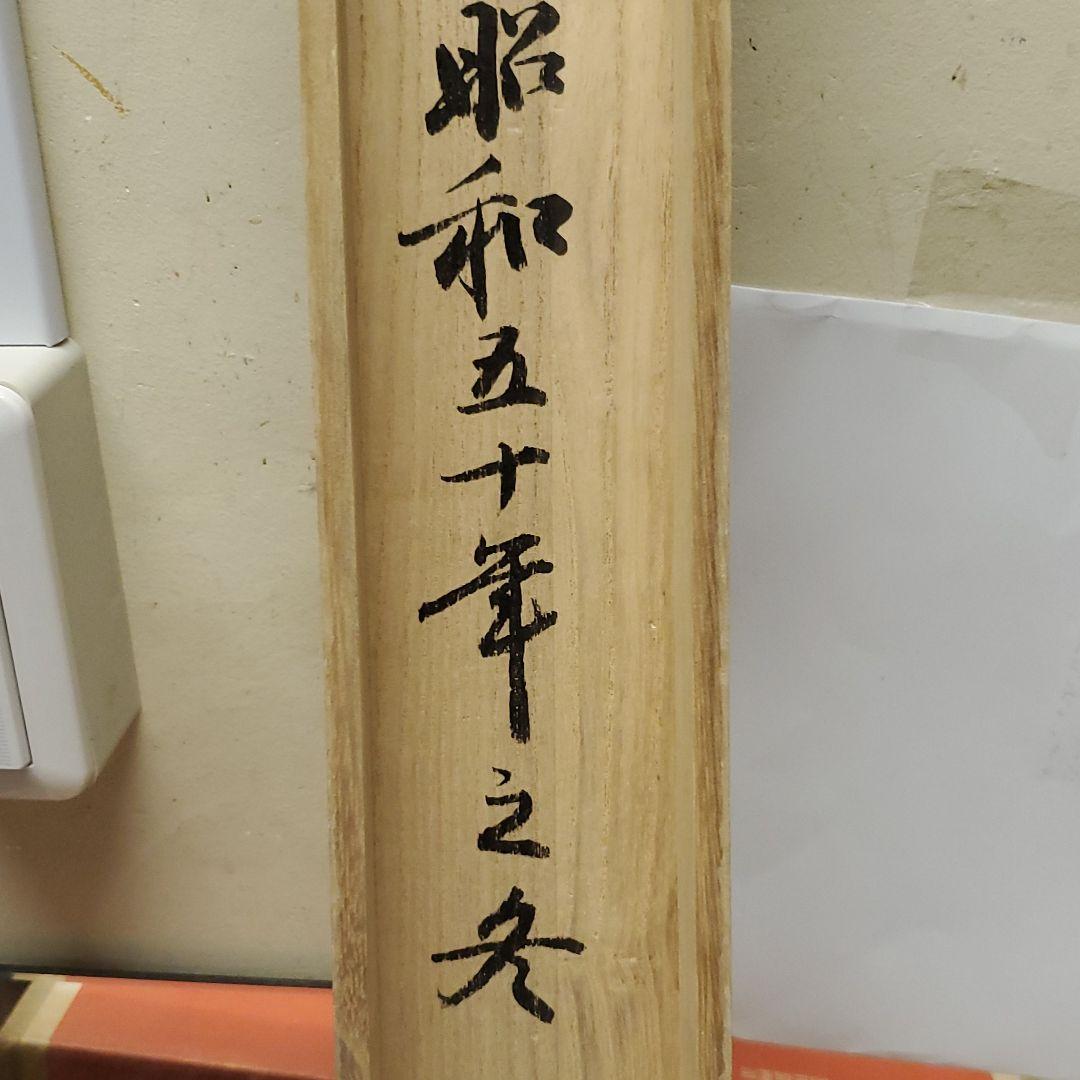 昭和五十年之冬